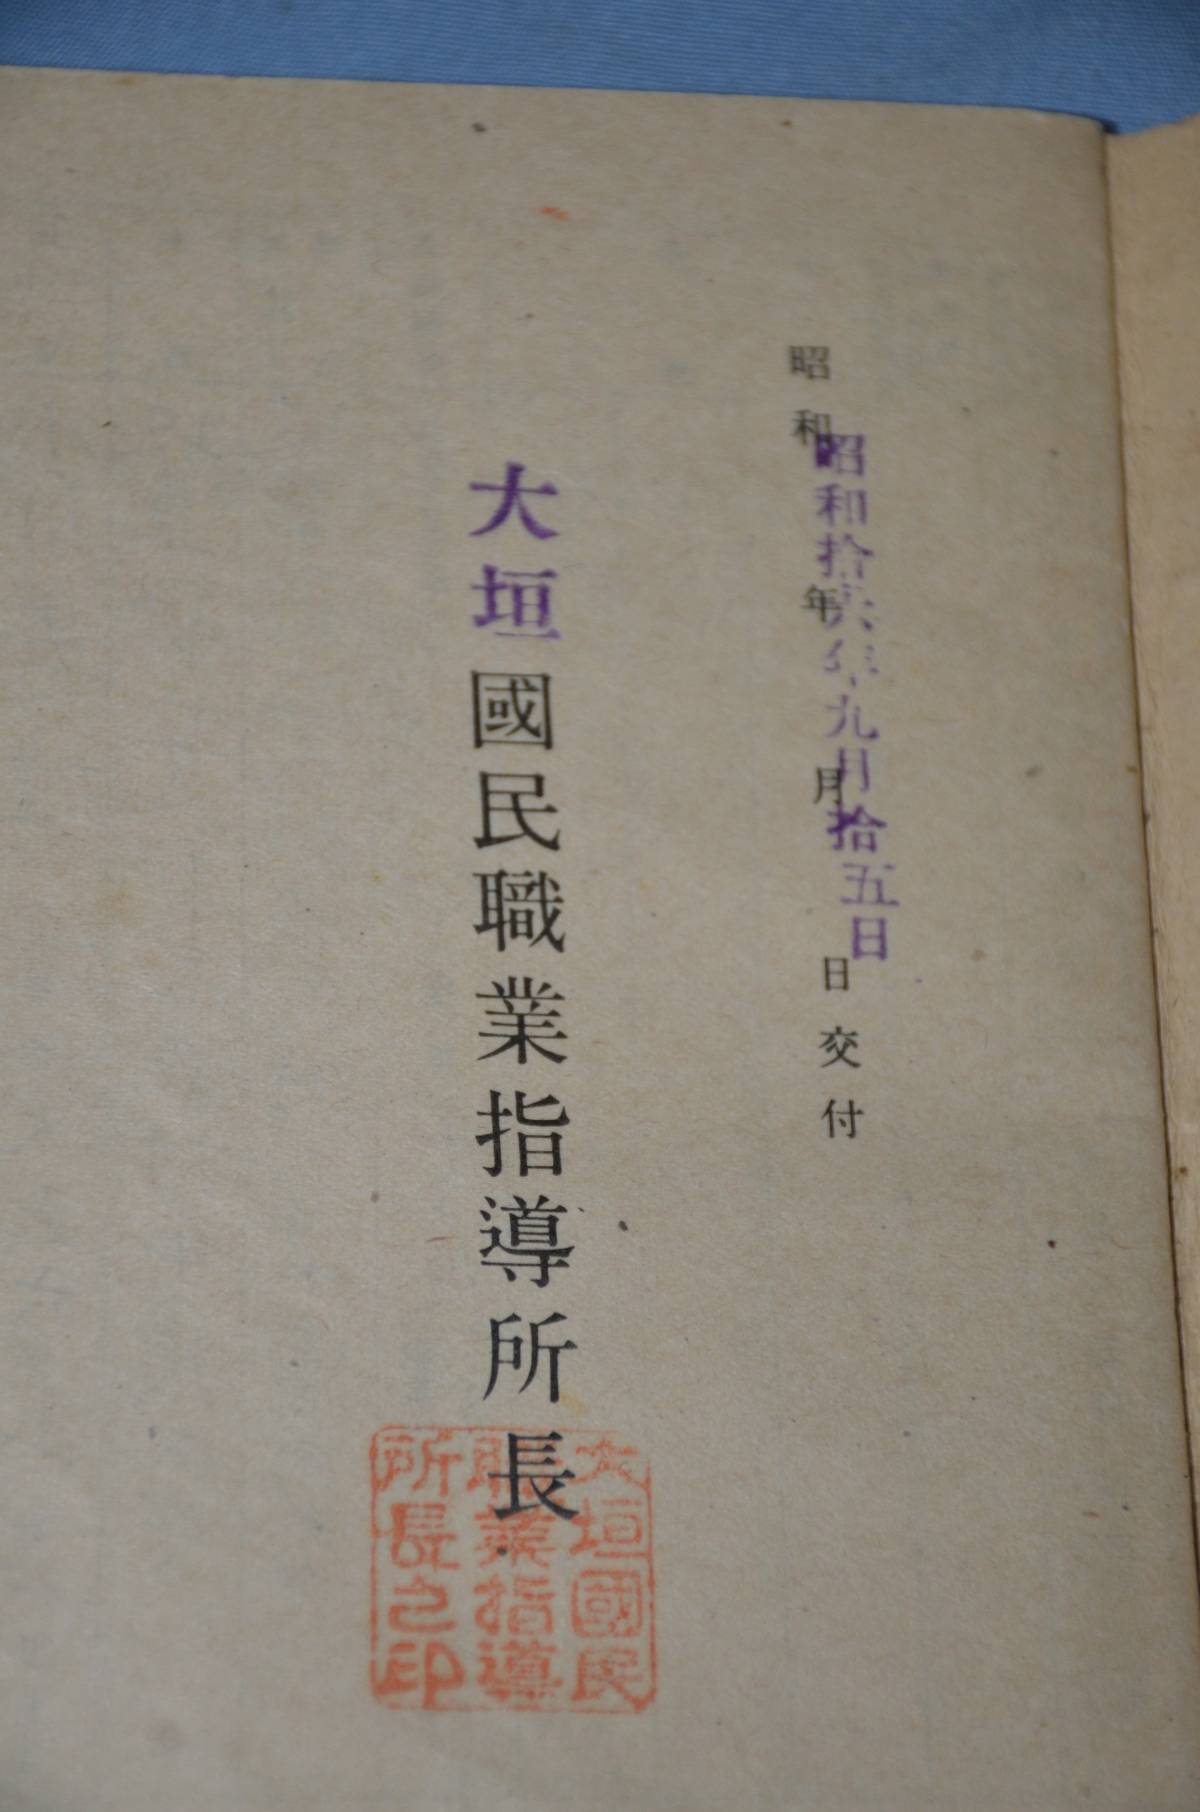 昭和 年 月 日交付
昭和拾六年九月拾五日
大垣國民職業指導所長
大垣國民
職業指導
所長之印